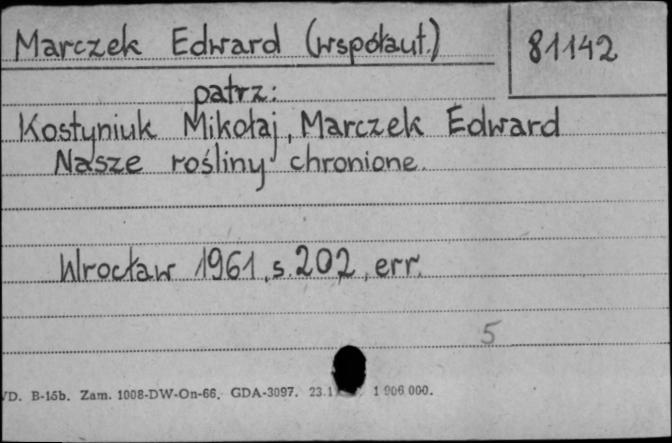 Marczek Edward (współaut.) 81142
patrz:
Kostyniuk Mikołaj, Marczek Edward
Nasze rośliny chronione.
Wrocław 1961, s. 202, err.
5
VD. B-15b. Zam. 1008-DW-On-66. GDA-3097. 23.1 1 906 000.